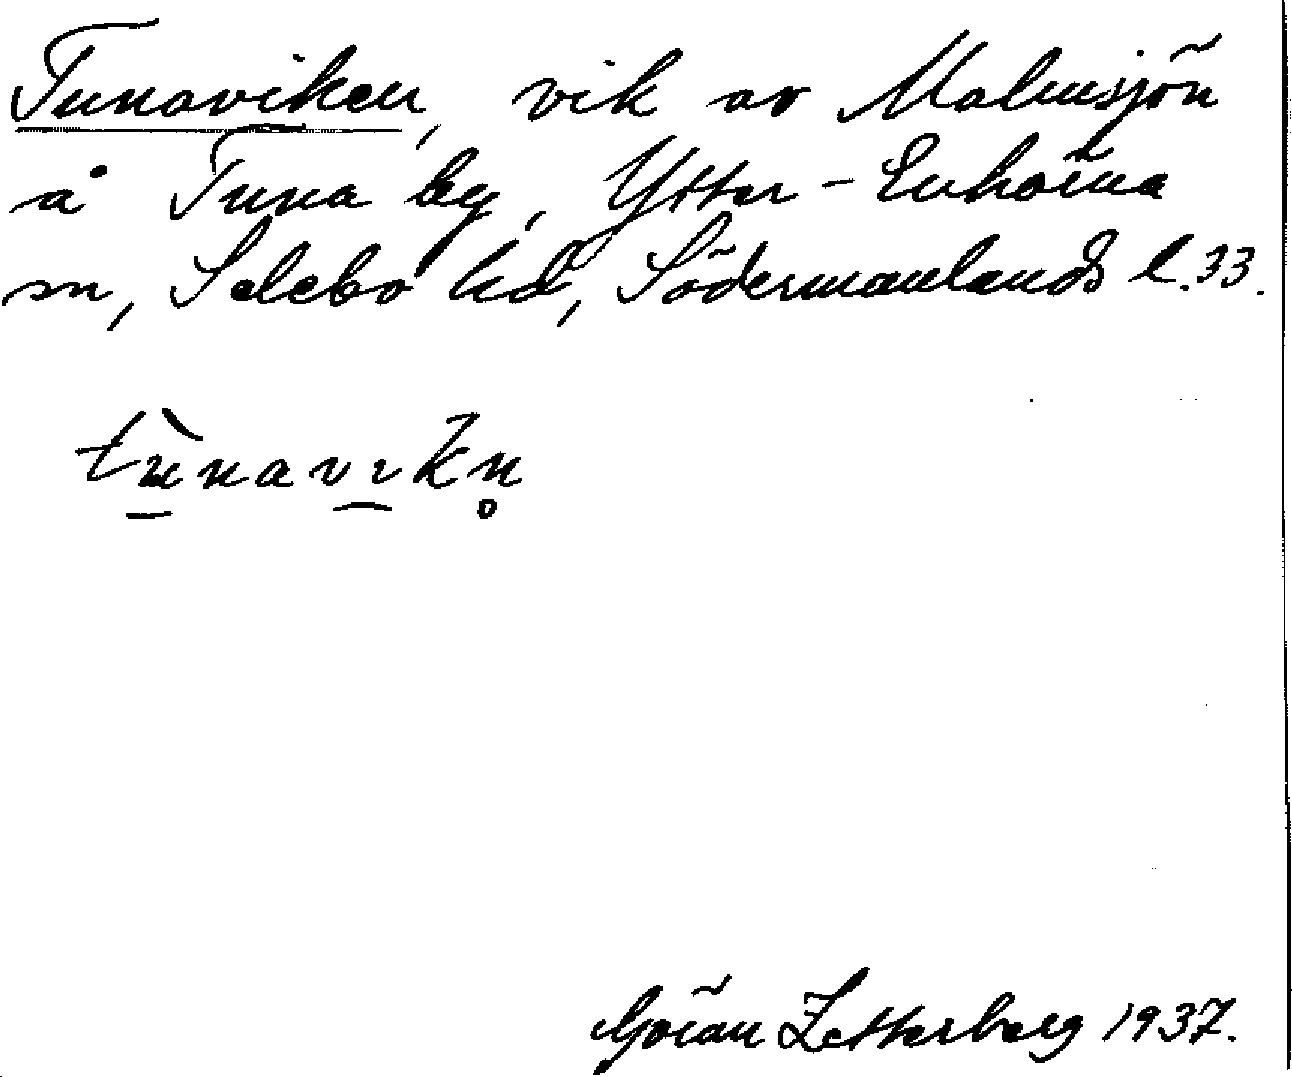 Tunaviken, vik av Malmsjön
å Tuna by, Ytter-Enhörna
sn, Selebo hd, Södermanlands l. 33.
tùnavıkn̥
Göran Zetterberg 1937.